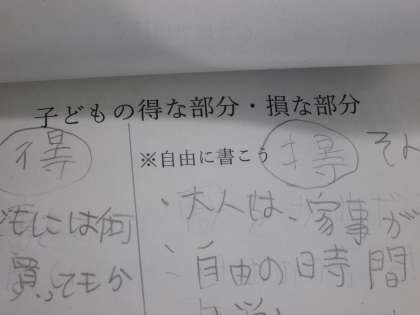 子どもの得な部分・損な部分
得
※自由に書こう
そ
は何
買ってもか
・大人は、家事が
自由の時間